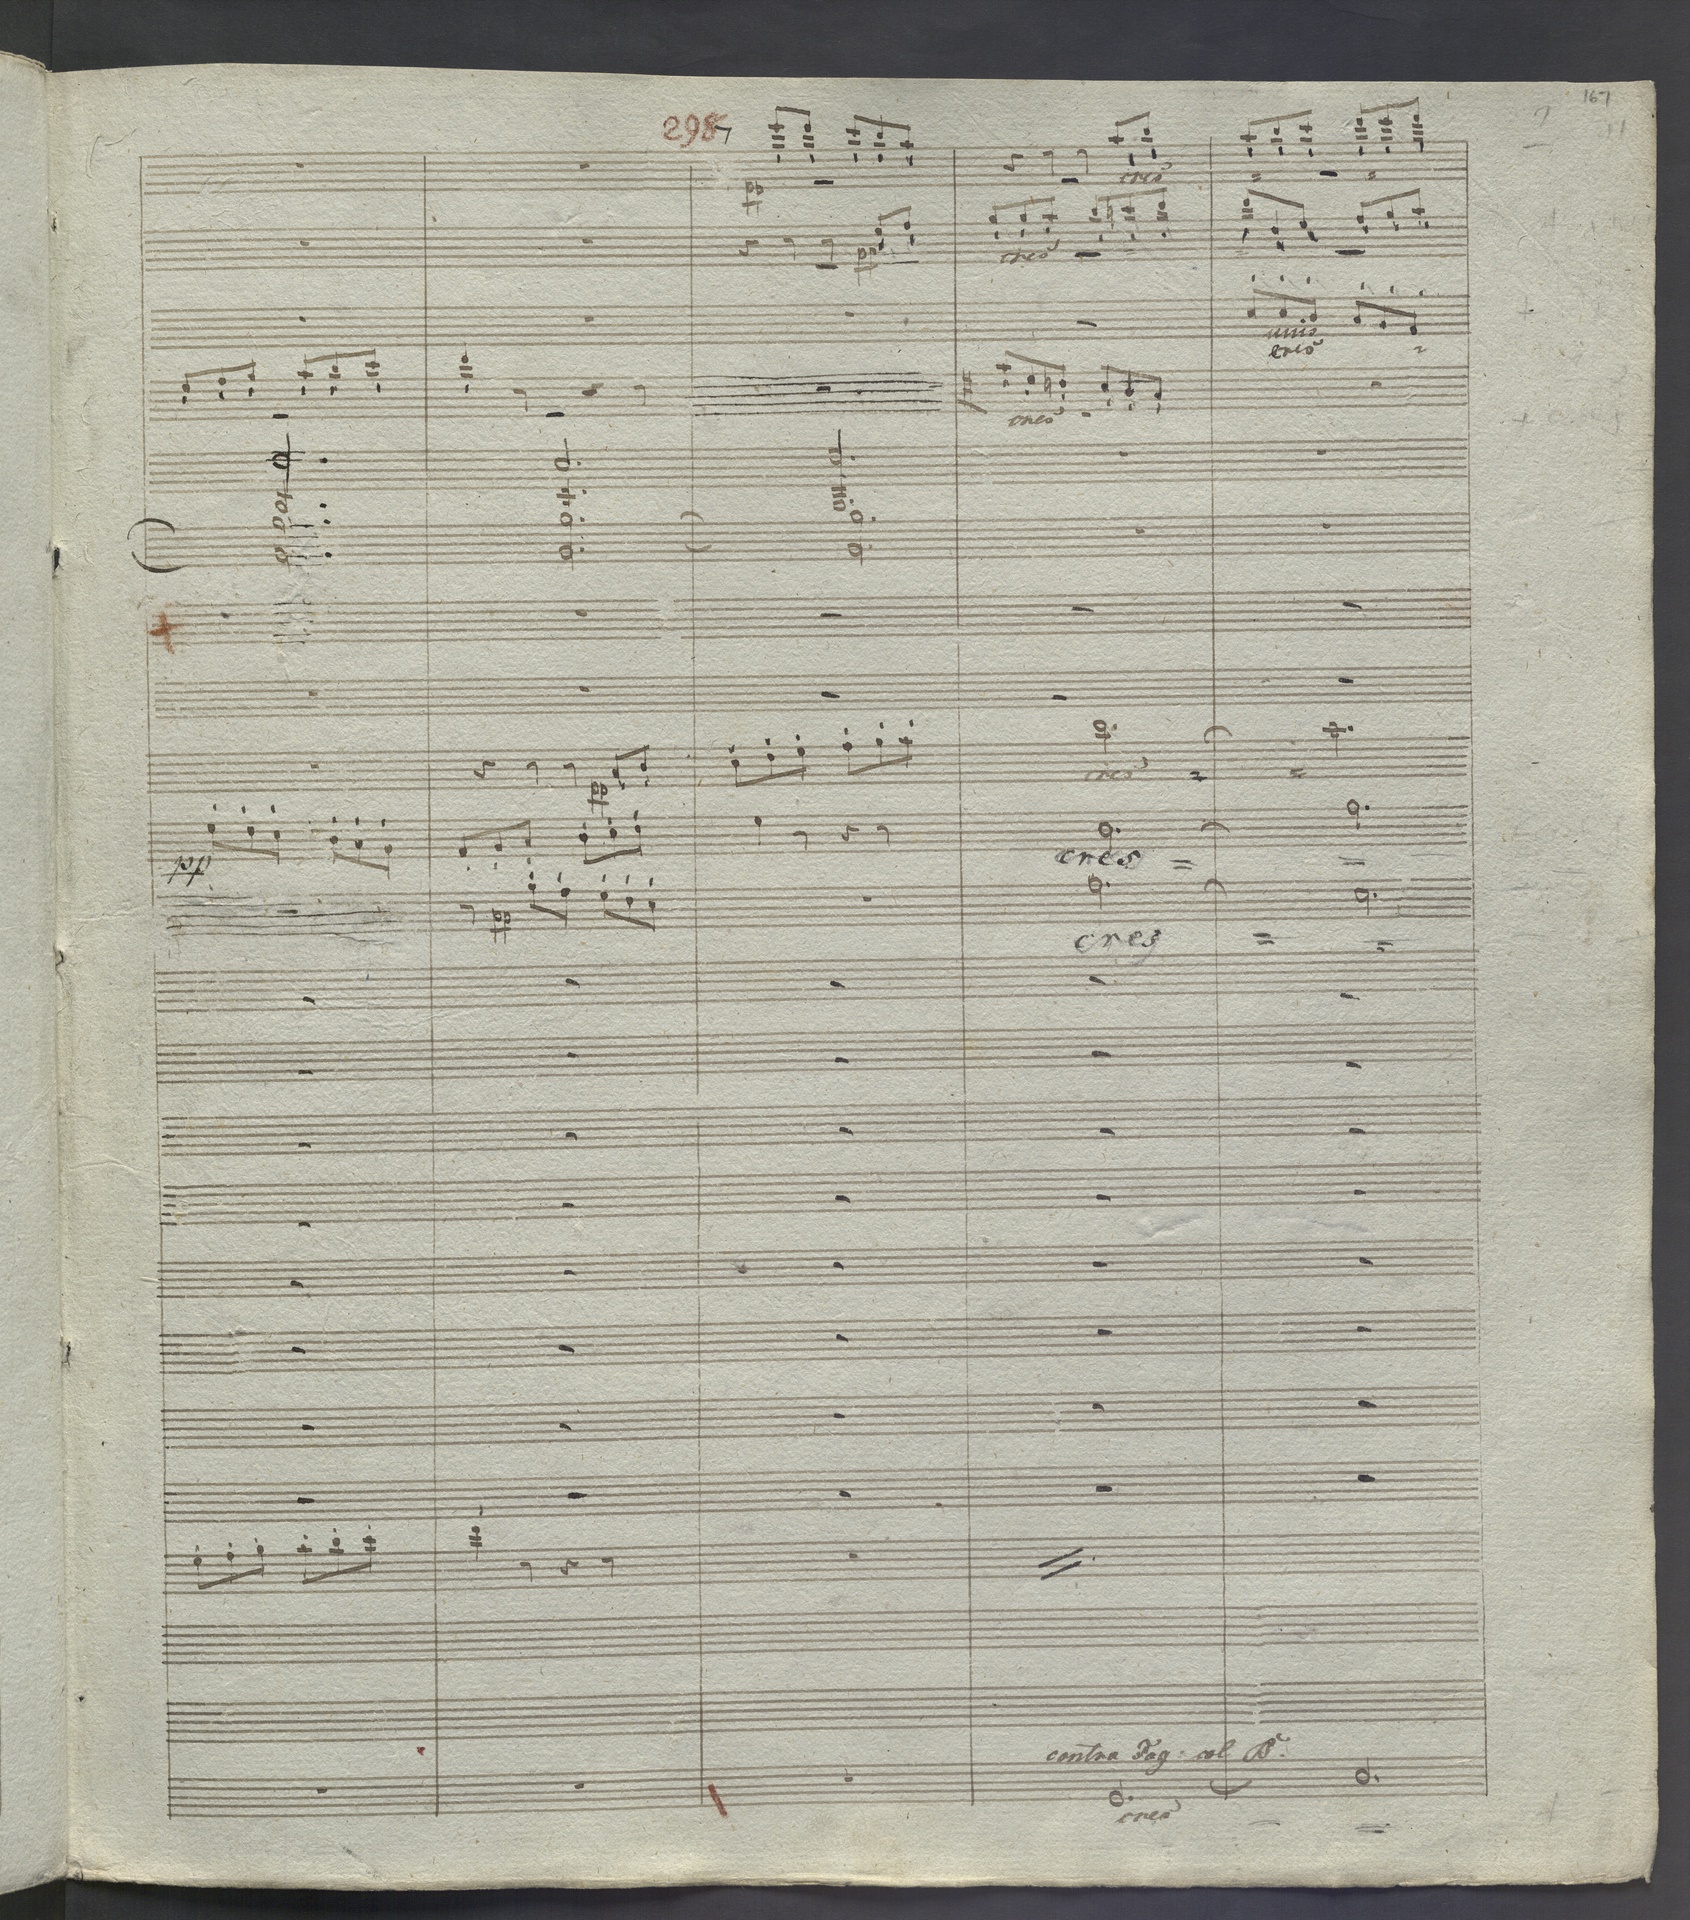 167
298
cres
cres
unis
cres
cres
cres
pp
cres
cres
contra Fag: col B:
cres